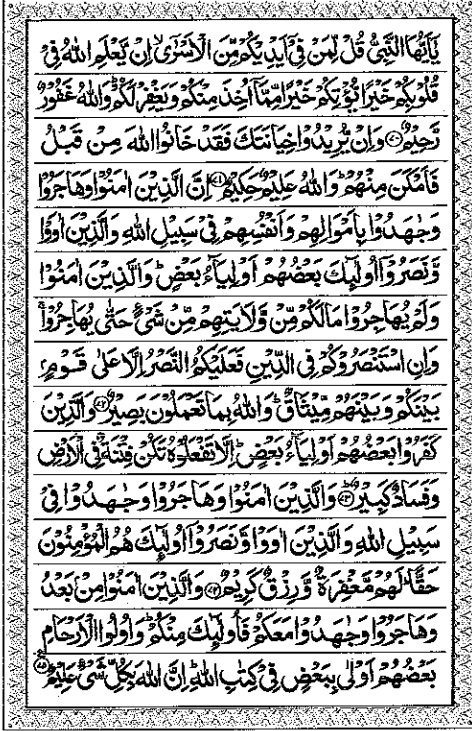 يٰۤاَيُّهَا النَّبِيُّ قُلْ لِّمَنْ فِيْۤ اَيْدِيْكُمْ مِّنَ الْاَسْرٰۤى ۙ اِنْ يَّعْلَمِ اللّٰهُ فِيْ
قُلُوْبِكُمْ خَيْرًا يُّؤْتِكُمْ خَيْرًا مِّمَّاۤ اُخِذَ مِنْكُمْ وَيَغْفِرْ لَكُمْ ؕ وَاللّٰهُ غَفُوْرٌ
رَّحِيْمٌ ﴿۷۰﴾ وَاِنْ يُّرِيْدُوْا خِيَانَتَكَ فَقَدْ خَانُوا اللّٰهَ مِنْ قَبْلُ
فَاَمْكَنَ مِنْهُمْ ؕ وَاللّٰهُ عَلِيْمٌ حَكِيْمٌ ﴿۷۱﴾ اِنَّ الَّذِيْنَ اٰمَنُوْا وَهَاجَرُوْا
وَجٰهَدُوْا بِاَمْوَالِهِمْ وَاَنْفُسِهِمْ فِيْ سَبِيْلِ اللّٰهِ وَالَّذِيْنَ اٰوَوْا
وَّنَصَرُوْۤا اُولٰٓئِكَ بَعْضُهُمْ اَوْلِيَآءُ بَعْضٍ ؕ وَالَّذِيْنَ اٰمَنُوْا
وَلَمْ يُهَاجِرُوْا مَا لَكُمْ مِّنْ وَّلَايَتِهِمْ مِّنْ شَيْءٍ حَتّٰى يُهَاجِرُوْا ۚ
وَاِنِ اسْتَنْصَرُوْكُمْ فِي الدِّيْنِ فَعَلَيْكُمُ النَّصْرُ اِلَّا عَلٰى قَوْمٍۭ
بَيْنَكُمْ وَبَيْنَهُمْ مِّيْثَاقٌ ؕ وَاللّٰهُ بِمَا تَعْمَلُوْنَ بَصِيْرٌ ﴿۷۲﴾ وَالَّذِيْنَ
كَفَرُوْا بَعْضُهُمْ اَوْلِيَآءُ بَعْضٍ ؕ اِلَّا تَفْعَلُوْهُ تَكُنْ فِتْنَةٌ فِي الْاَرْضِ
وَفَسَادٌ كَبِيْرٌ ﴿۷۳﴾ وَالَّذِيْنَ اٰمَنُوْا وَهَاجَرُوْا وَجٰهَدُوْا فِيْ
سَبِيْلِ اللّٰهِ وَالَّذِيْنَ اٰوَوْا وَّنَصَرُوْۤا اُولٰٓئِكَ هُمُ الْمُؤْمِنُوْنَ
حَقًّا ؕ لَهُمْ مَّغْفِرَةٌ وَّرِزْقٌ كَرِيْمٌ ﴿۷۴﴾ وَالَّذِيْنَ اٰمَنُوْا مِنْۢ بَعْدُ
وَهَاجَرُوْا وَجٰهَدُوْا مَعَكُمْ فَاُولٰٓئِكَ مِنْكُمْ ؕ وَاُولُوا الْاَرْحَامِ
بَعْضُهُمْ اَوْلٰى بِبَعْضٍ فِيْ كِتٰبِ اللّٰهِ ؕ اِنَّ اللّٰهَ بِكُلِّ شَيْءٍ عَلِيْمٌ ﴿۷۵﴾